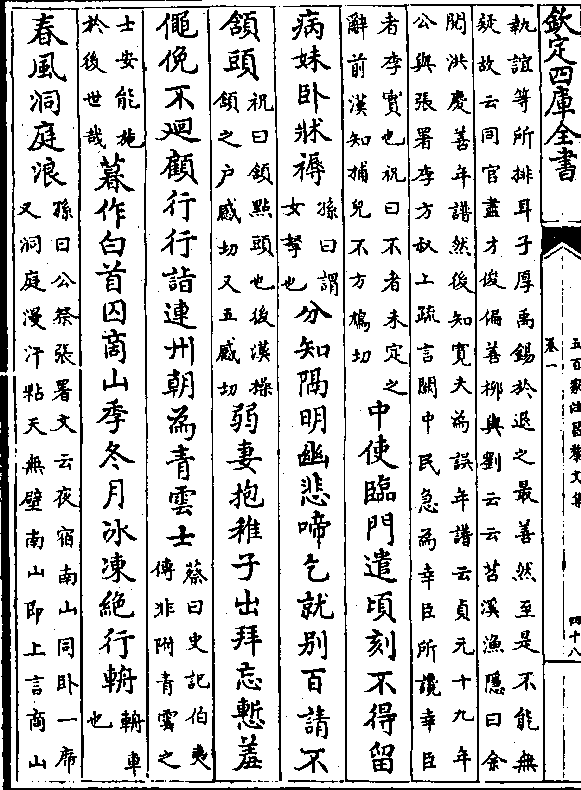 欽定四庫全書
五百家注昌黎文集
卷一
四十八
執誼等所排耳子厚禹錫於退之最善然至是不能無
疑故云同官盡才俊偏善柳與劉云云苕溪漁隱曰余
閲洪慶善年譜然後知寛夫為誤年譜云貞元十九年
公與張署李方叔上疏言關中民急為幸臣所讒幸臣
者李實也祝曰不者未定之
辭前漢知捕兒不方鳩切
中使臨門遣頃刻不得留
病妹卧牀褥
孫曰謂
女孥也
分知隔明幽悲啼乞就別百請不
頷頭
祝曰頷點頭也後漢操
頷之户感切又五感切
弱妻抱稚子出拜忘慙羞
僶俛不廻顧行行詣連州朝為青雲士
蔡曰史記伯夷
傳非附青雲之
士安能施
於後世哉
暮作白首囚商山季冬月冰凍絶行輈
輈車
也
春風洞庭浪
孫曰公祭張署文云夜宿南山同卧一席
又洞庭漫汗粘天無壁南山即上言商山